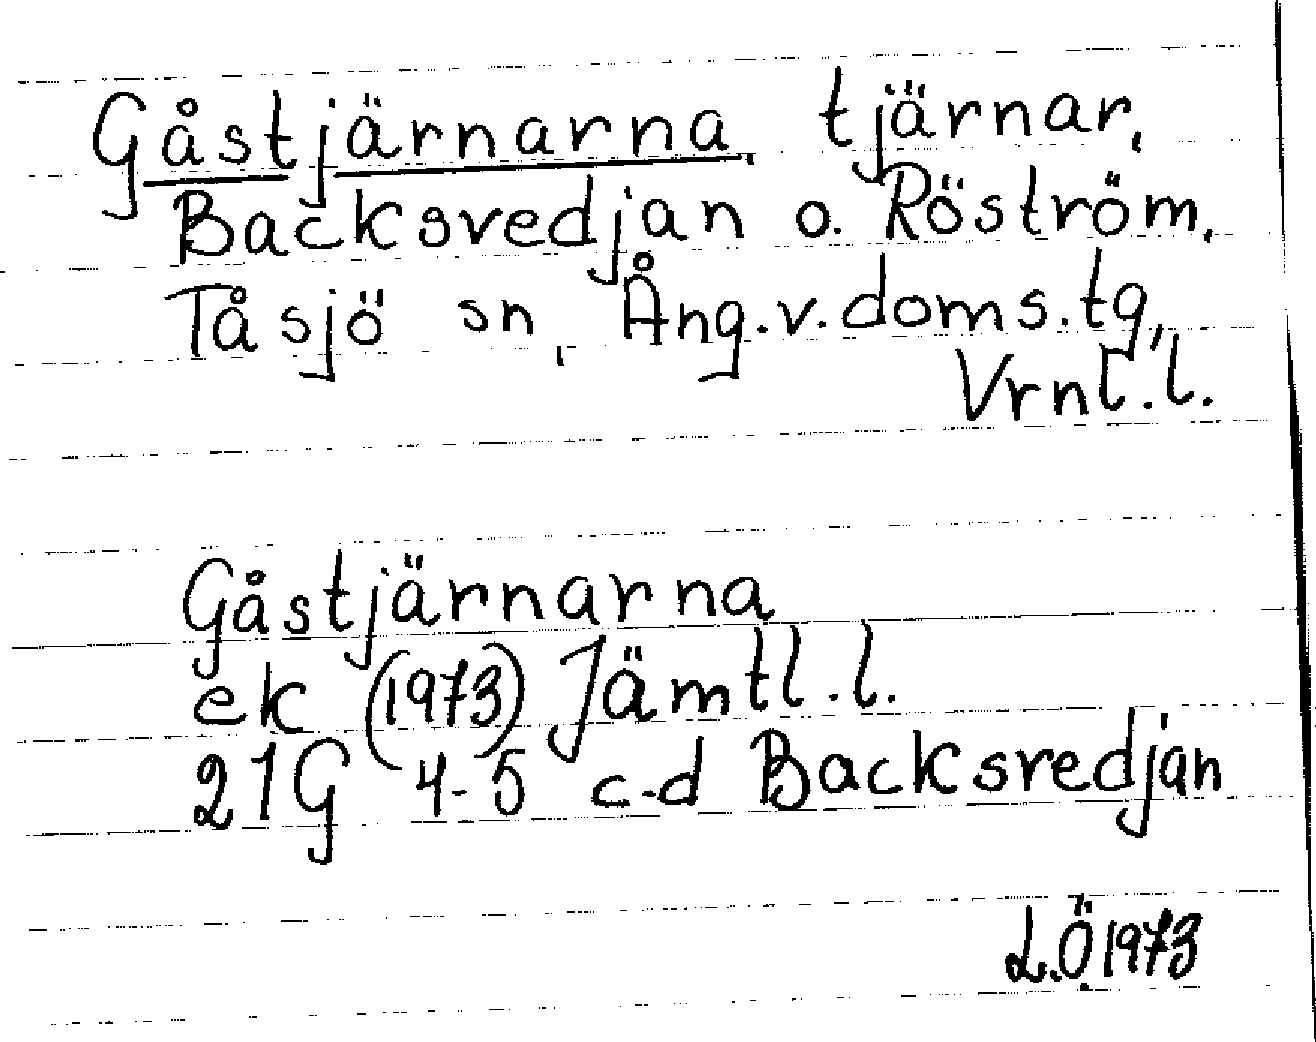 Gåstjärnarna, tjärnar,
Backsvedjan o. Röström,
Tåsjö sn, Ång.v.doms.tg,
Vrnl.l.
Gåstjärnarna
ek (1973) Jämtl.l.
21G 4-5 c-d Backsvedjan
L.Ö 1973